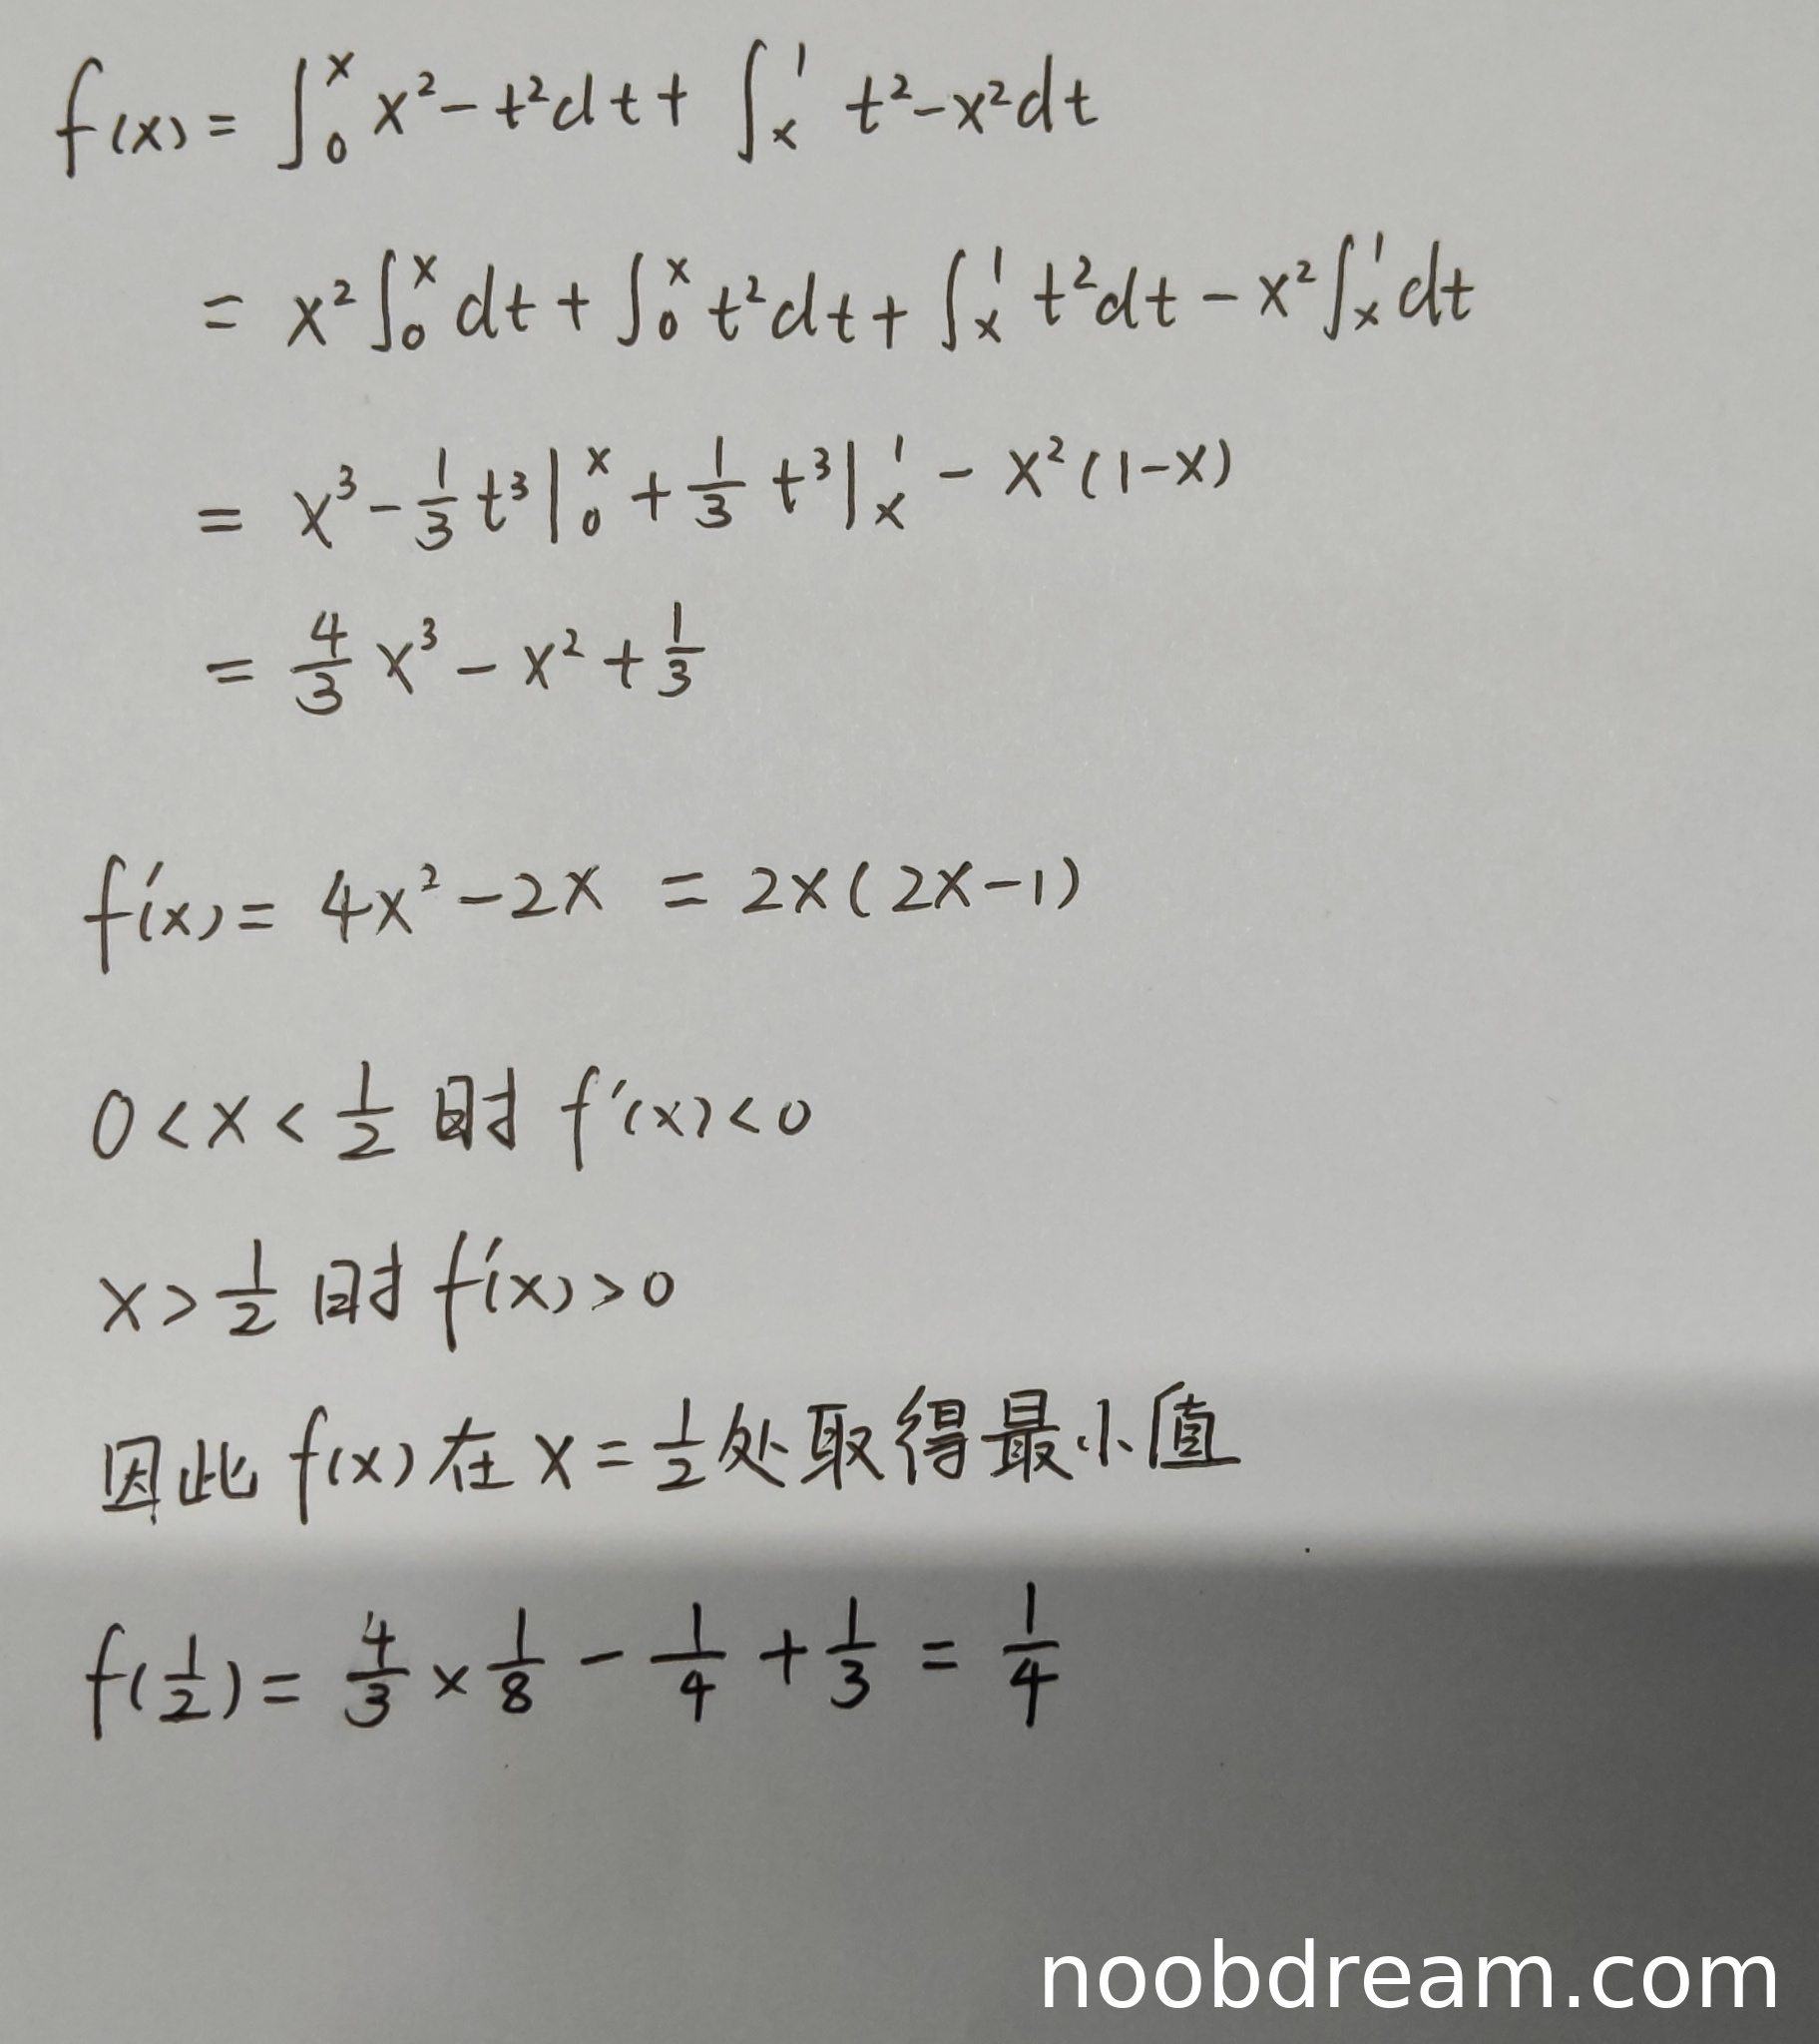 f(x) = ∫₀ˣ x² - t² dt + ∫ₓ¹ t² - x² dt
= x² ∫₀ˣ dt + ∫₀ˣ t² dt + ∫ₓ¹ t² dt - x² ∫ₓ¹ dt
= x³ - 1/3 t³ |₀ˣ + 1/3 t³ |ₓ¹ - x² (1-x)
= 4/3 x³ - x² + 1/3
f'(x) = 4x² - 2x = 2x(2x-1)
0 < x < 1/2 时 f'(x) < 0
x > 1/2 时 f'(x) > 0
因此 f(x) 在 x = 1/2 处取得最小值
f(1/2) = 4/3 × 1/8 - 1/4 + 1/3 = 1/4
noobdream.com